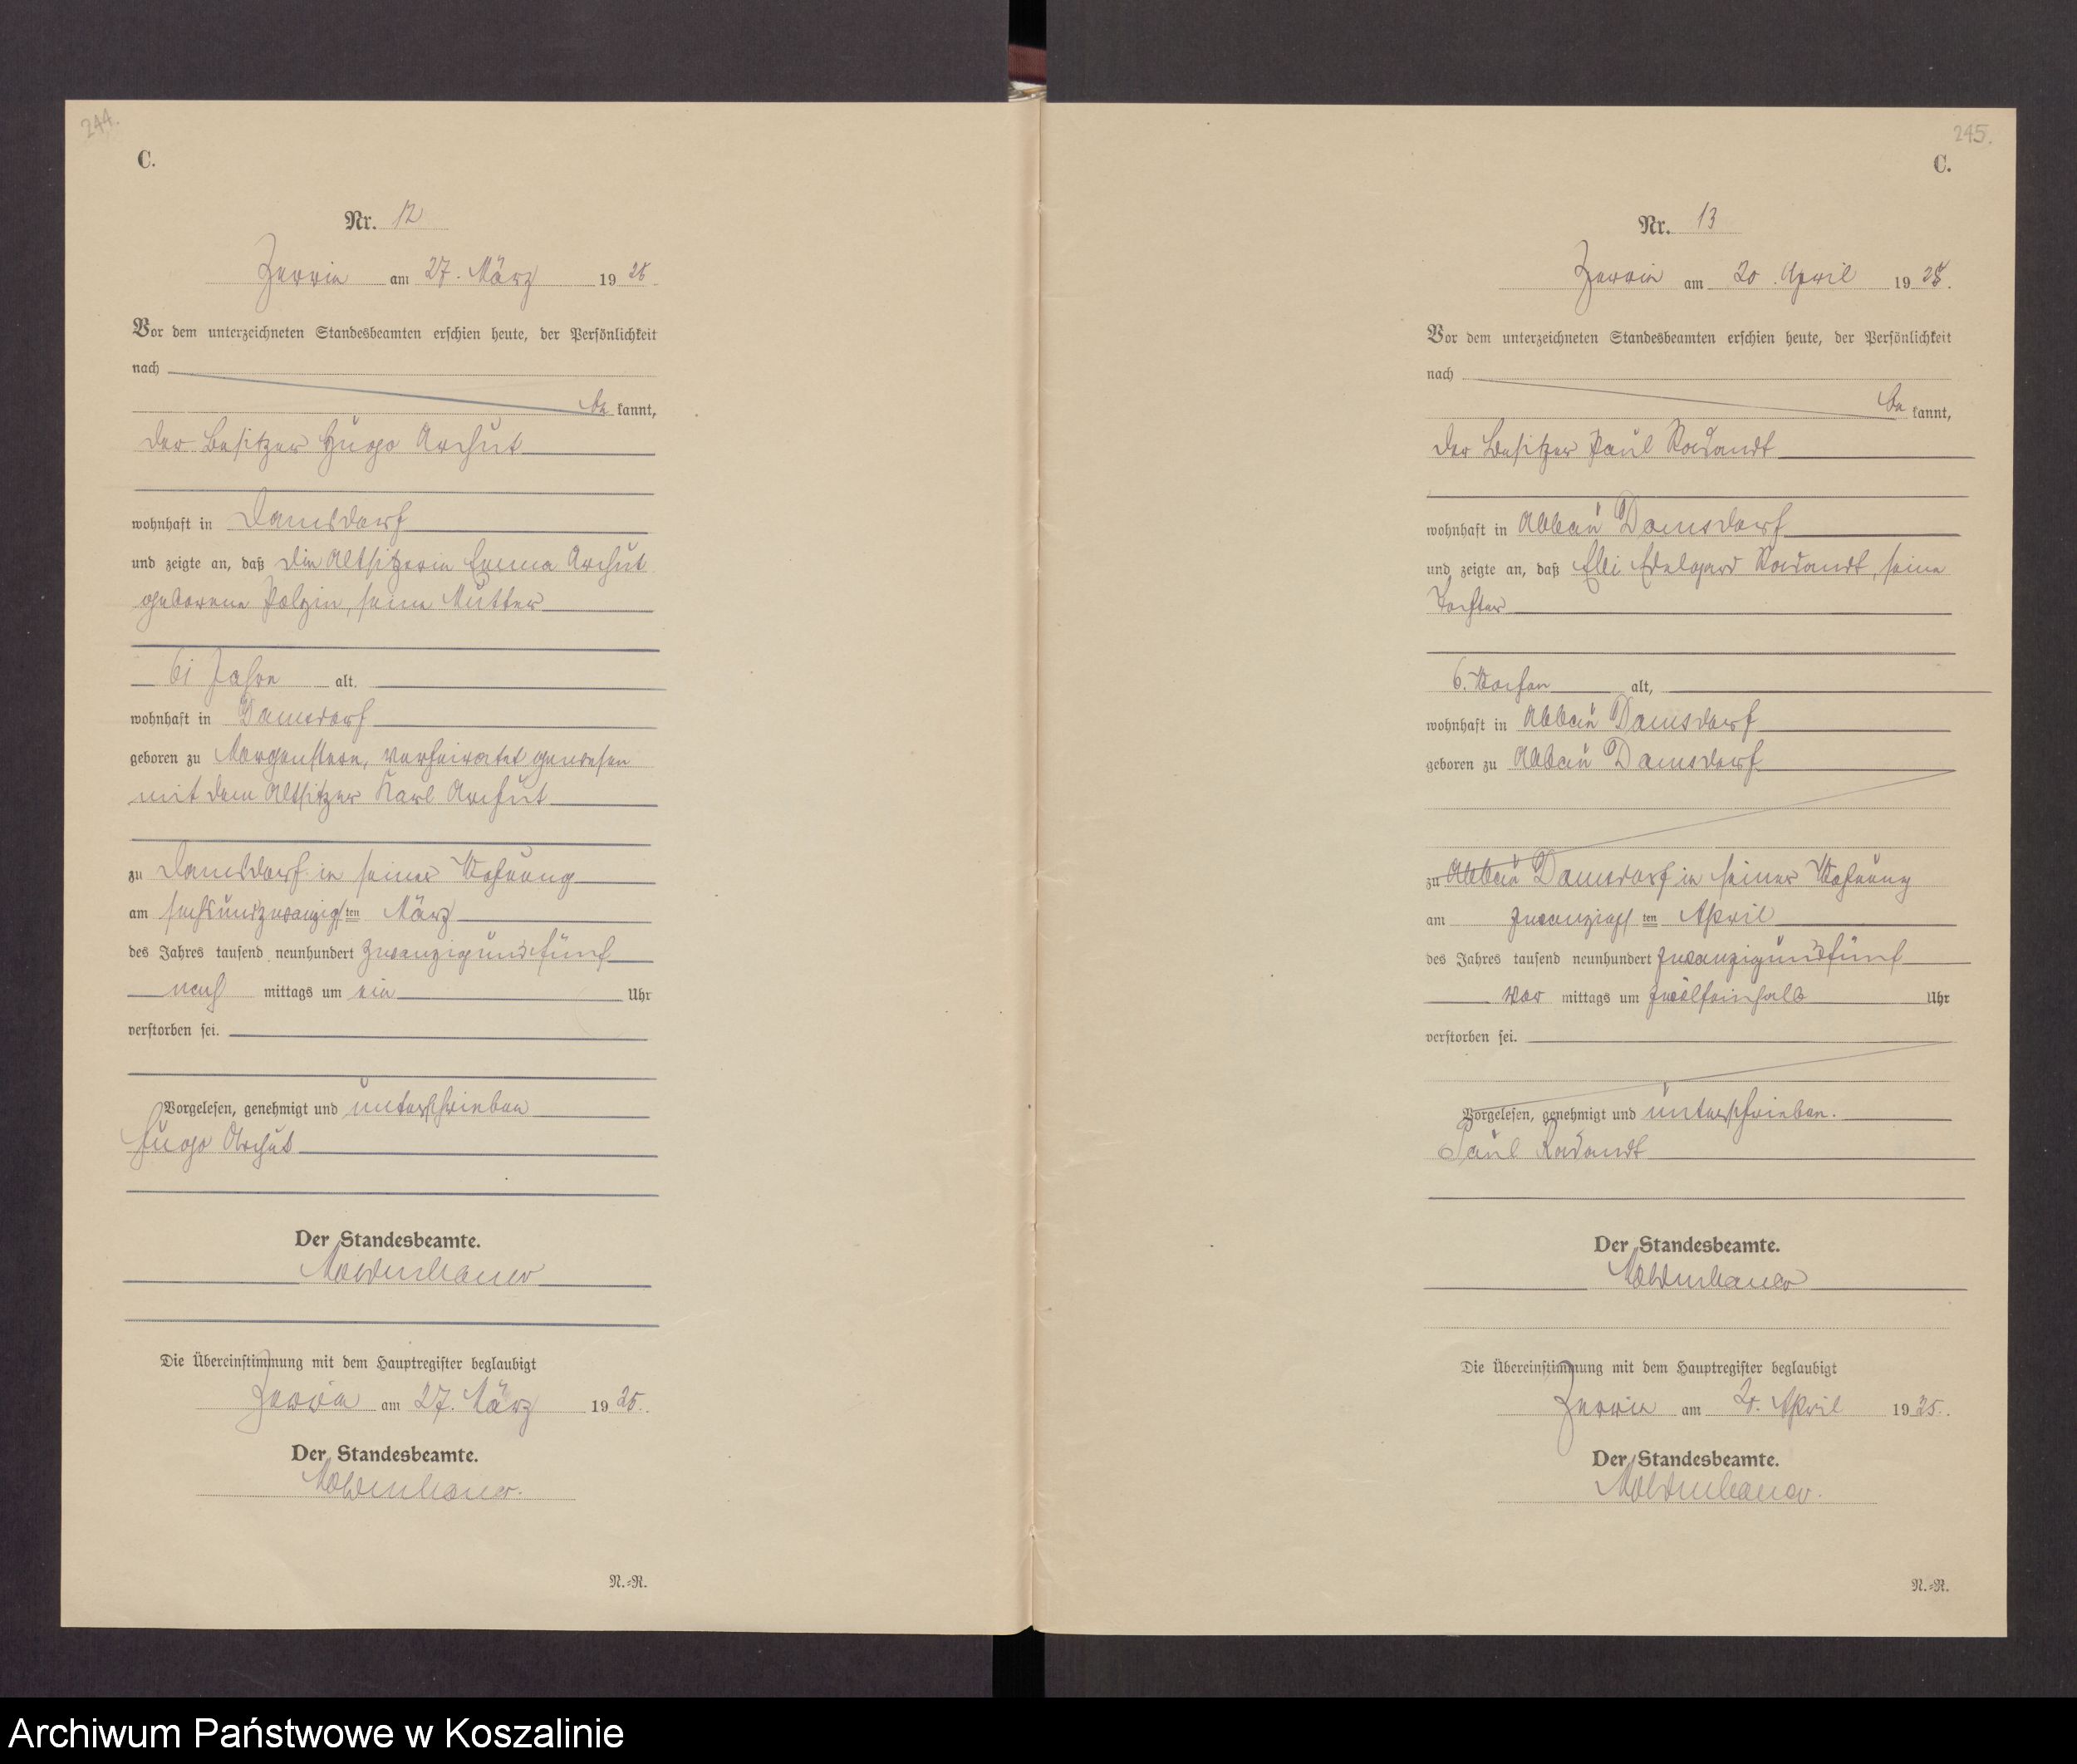 244.
C.
Nr. 12
Zerrin am 27. März 1925.
Vor dem unterzeichneten Standesbeamten erschien heute, der Persönlichkeit
nach
be kannt,
der Besitzer Hugo Archut
wohnhaft in Damsdorf
und zeigte an, daß die Altsitzerin Emma Archut
geborene Polzin, seine Mutter
61 Jahre alt.
wohnhaft in Damsdorf
geboren zu Morgenstern, verheiratet gewesen
mit dem Altsitzer Karl Archut
zu Damsdorf in seiner Wohnung
am sechsundzwanzigsten März
des Jahres tausend neunhundert zwanzigundfünf
nach mittags um ein Uhr
verstorben sei.
Vorgelesen, genehmigt und unterschrieben
Hugo Archut
Der Standesbeamte.
Moldenhauer
Die Übereinstimmung mit dem Hauptregister beglaubigt
Zerrin am 27. März 1925.
Der Standesbeamte.
Moldenhauer.
N.=R.
245.
C.
Nr. 13
Zerrin am 20. April 1925.
Vor dem unterzeichneten Standesbeamten erschien heute, der Persönlichkeit
nach
be kannt,
der Besitzer Paul Radandt
wohnhaft in Abbau Damsdorf
und zeigte an, daß Elli Edelgard Radandt, seine
Tochter
6. Wochen alt,
wohnhaft in Abbau Damsdorf
geboren zu Abbau Damsdorf
zu Abbau Damsdorf in seiner Wohnung
am zwanzigsten April
des Jahres tausend neunhundert zwanzigundfünf
vor mittags um zwölfeinhalb Uhr
verstorben sei.
Vorgelesen, genehmigt und unterschrieben.
Paul Radandt
Der Standesbeamte.
Moldenhauer
Die Übereinstimmung mit dem Hauptregister beglaubigt
Zerrin am 20. April 1925.
Der Standesbeamte.
Moldenhauer.
N.=R.
Archiwum Państwowe w Koszalinie